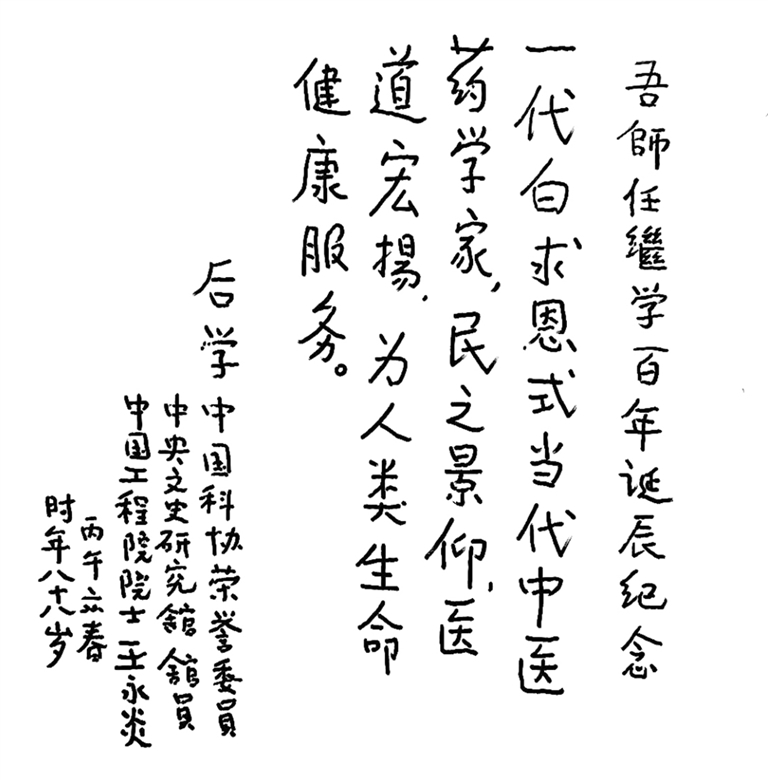 吾師任繼学百年诞辰纪念
一代白求恩式当代中医
药学家,民之景仰,医
道宏揚,为人类生命
健康服务。
后学
中国科协荣誉委員
中央文史研究館館員
中国工程院院士王永炎
丙午立春
时年八十八岁